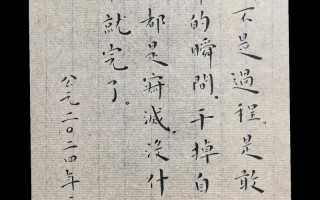 不是過程。是敢
的瞬間。干掉自
都是寂滅。沒什
就完了。
公元二〇二四年